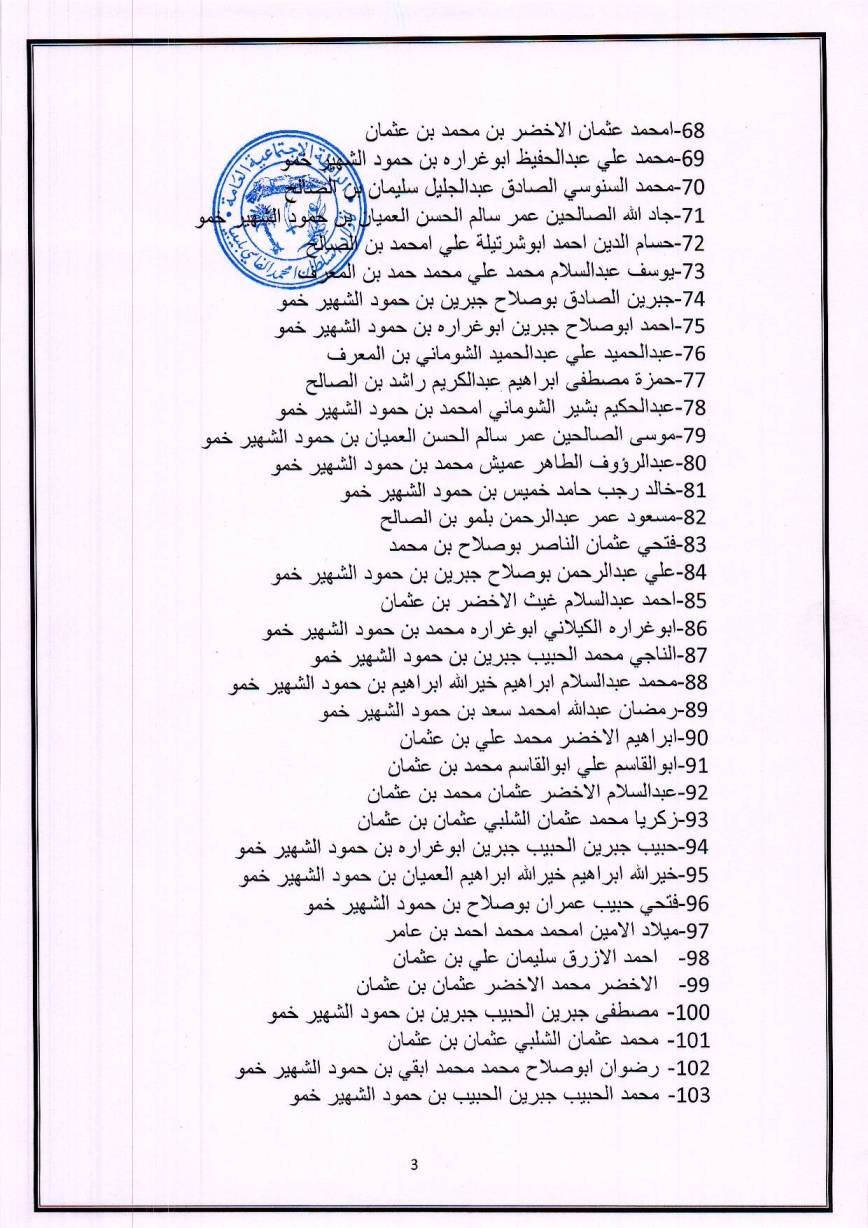 68-امحمد عثمان الاخضر بن محمد بن عثمان
69-محمد علي عبدالحفيظ ابوغراره بن حمود الشهير خمو
70-محمد السنوسي الصادق عبدالجليل سليمان بن الصالح
71-جاد الله الصالحين عمر سالم الحسن العميان بن حمود الشهير خمو
72-حسام الدين احمد ابوشرتيلة علي امحمد بن الصالح
73-يوسف عبدالسلام محمد علي محمد حمد بن المعرف
74-جبرين الصادق بوصلاح جبرين بن حمود الشهير خمو
75-احمد ابوصلاح جبرين ابوغراره بن حمود الشهير خمو
76-عبدالحميد علي عبدالحميد الشوماني بن المعرف
77-حمزة مصطفى ابراهيم عبدالكريم راشد بن الصالح
78-عبدالحكيم بشير الشوماني امحمد بن حمود الشهير خمو
79-موسى الصالحين عمر سالم الحسن العميان بن حمود الشهير خمو
80-عبدالرؤوف الطاهر عميش محمد بن حمود الشهير خمو
81-خالد رجب حامد خميس بن حمود الشهير خمو
82-مسعود عمر عبدالرحمن بلمو بن الصالح
83-فتحي عثمان الناصر بوصلاح بن محمد
84-علي عبدالرحمن بوصلاح جبرين بن حمود الشهير خمو
85-احمد عبدالسلام غيث الاخضر بن عثمان
86-ابوغراره الكيلاني ابوغراره محمد بن حمود الشهير خمو
87-الناجي محمد الحبيب جبرين بن حمود الشهير خمو
88-محمد عبدالسلام ابراهيم خيرالله ابراهيم بن حمود الشهير خمو
89-رمضان عبدالله امحمد سعد بن حمود الشهير خمو
90-ابراهيم الاخضر محمد علي بن عثمان
91-ابوالقاسم علي ابوالقاسم محمد بن عثمان
92-عبدالسلام الاخضر عثمان محمد بن عثمان
93-زكريا محمد عثمان الشلبي عثمان بن عثمان
94-حبيب جبرين الحبيب جبرين ابوغراره بن حمود الشهير خمو
95-خيرالله ابراهيم خيرالله ابراهيم العميان بن حمود الشهير خمو
96-فتحي حبيب عمران بوصلاح بن حمود الشهير خمو
97-ميلاد الامين امحمد محمد احمد بن عامر
98- احمد الازرق سليمان علي بن عثمان
99- الاخضر محمد الاخضر عثمان بن عثمان
100- مصطفى جبرين الحبيب جبرين بن حمود الشهير خمو
101- محمد عثمان الشلبي عثمان بن عثمان
102- رضوان ابوصلاح محمد محمد ابقي بن حمود الشهير خمو
103- محمد الحبيب جبرين الحبيب بن حمود الشهير خمو
الإجتماعية العامة
السلطان امحمد الفاسي
3